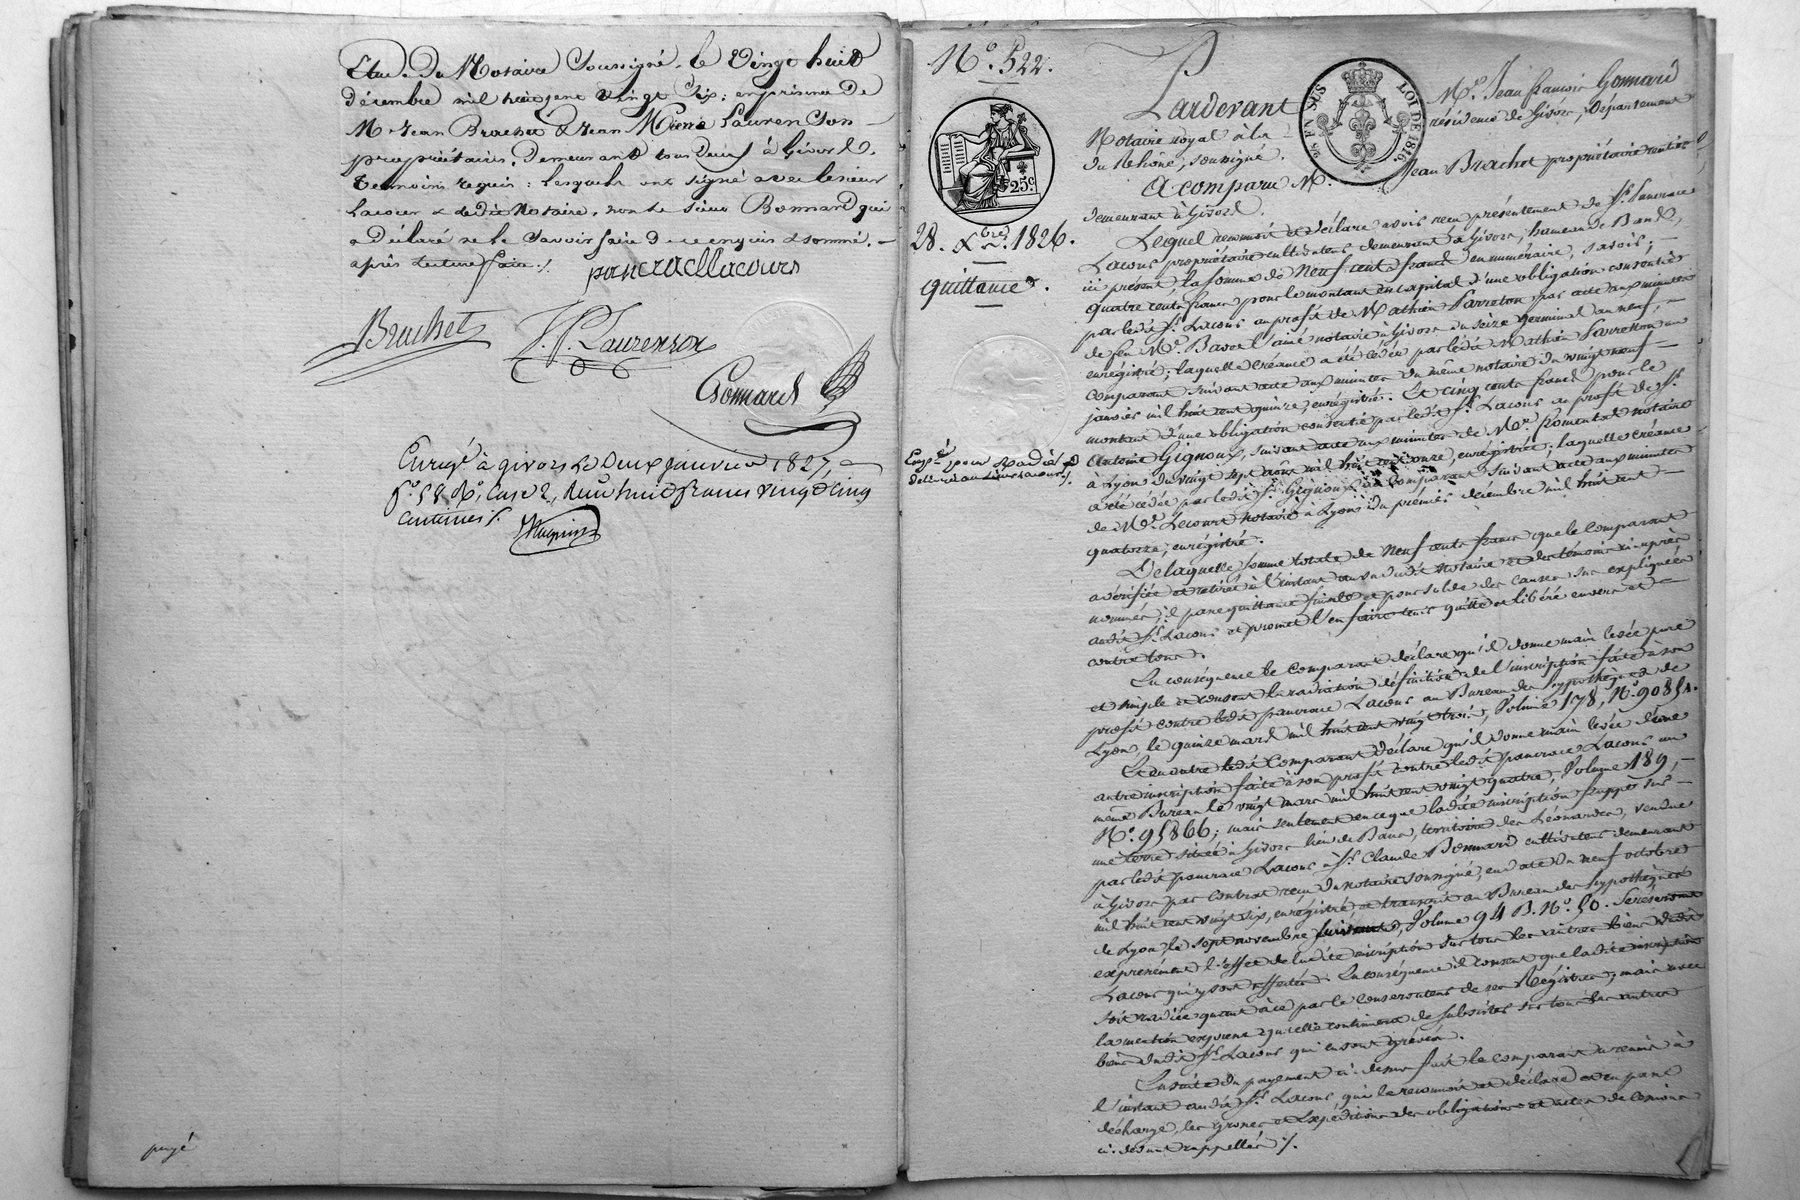 Etude du Notaire Soussigné, le Vingt huit
décembre mil huit cent vingt Six; en présence de
M. Jean Brachet & Jean Pierre Laurenson
propriétaires, demeurant tous deux à Givors,
témoins requis; lesquels ont signé avec le sieur
Lacour & ledit Notaire, non le sieur Bonnard qui
a déclaré ne le Savoir faire de ce enquis & sommé,
après lecture faite ./.
pancrace Lacours
Brachet
J. P. Laurenson
Gonnard
Enreg.é à givors le Deux janvier 1827,
f.o 58 R.o, Case 2, Reçu huit francs vingt cinq
centimes ./.
payé
N.o 522.
25c
28. Xbre. 1826.
quittance.
Exp.é pour Radier
délivré au sieur Lacours ./.
LOI DE 1816.
Pardevant M.e Jean françois Gonnard
Notaire royal à la résidence de Givors, Département
du Rhône, soussigné.
A comparu M. Jean Brachet propriétaire rentier
demeurant à Givors.
Lequel reconnoit et déclare avoir reçu présentement de S.r Pancrace
Lacour propriétaire cultivateur demeurant à Givors, hameau de Bans,
ici présent la somme de Neuf cents francs en numéraire, savoir;
quatre cents francs pour le montant en capital d'une obligation consentie
par ledit S.r Lacour au profit de Mathieu Parreton par acte aux minutes
de feu M.e Bavet l'ainé notaire à Givors du seize germinal an neuf,
enregistré; laquelle créance a été cédée par ledit Mathieu Parreton au
comparant suivant acte aux minutes du même notaire du vingt neuf
janvier mil huit cent quinze, enregistré. Et cinq cents francs pour le
montant d'une obligation consentie par ledit S.r Lacour au profit de S.r
Antoine Gignoux, suivant acte aux minutes de M.e fromental notaire
à Lyon du vingt sept août mil huit cent onze, enregistrée; laquelle créance
a été cédée par ledit S.r Gignoux au comparant suivant acte aux minutes
de M.e Lecourt notaire à Lyon du premier décembre mil huit cent
quatorze, enregistré.
De laquelle somme totale de Neuf cents francs que le comparant
a vérifiée et retirée à l'instant au vu dudit notaire et des témoins ci après
nommés, il passe quittance finale et pour solde des causes sus expliquées
audit S.r Lacour et promet l'en faire tenir quitte et libéré envers et
contre tous.
En conséquence le comparant déclare qu'il donne main levée pure
et simple et consent la radiation définitive de l'inscription faite à son
profit contre ledit pancrace Lacour au Bureau des hypothèques de
Lyon, le quinze mars mil huit cent vingt trois, Volume 178, N.o 90854.
Et en outre ledit Comparant déclare qu'il donne main levée d'une
autre inscription faite à son profit contre ledit pancrace Lacour au
même Bureau le vingt mars mil huit cent vingt quatre, Volume 189,
N.o 95866; mais seulement en ce que ladite inscription frappe sur
une terre située à Givors lieu de Bans, territoire des Léonardes, vendue
par ledit pancrace Lacour à S.r Claude Bonnard cultivateur demeurant
à Givors par contrat reçu du notaire soussigné, en date du neuf octobre
mil huit cent vingt six, enregistré et transcrit au Bureau des hypothèques
de Lyon le sept novembre suivant, Volume 94 B. N.o 50. Se réservant
expressément l'effet de ladite inscription sur tous les autres biens dudit
Lacour qui y sont affectés. En conséquence il consent que ladite inscription
soit radiée quant à ce par le conservateur de ses Régistres, mais avec
la mention expresse qu'elle continuera de subsister sur tous les autres
biens dudit S.r Lacour qui en sont grévés.
Ensuite du payement ci-dessus fait le comparant a remis à
l'instant audit S.r Lacour qui le reconnoit et déclare et en passe
décharge, les grosses et Expéditions des obligations et actes de cession
ci-devant rappellés ./.